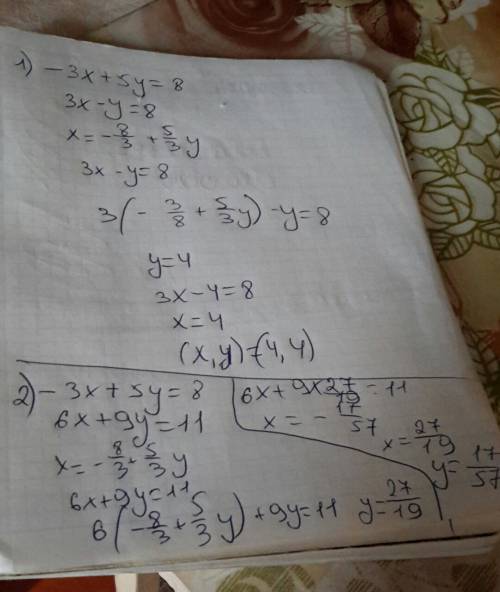 1) -3x+5y=8
3x-y=8
x=-8/3+5/3y
3x-y=8
3(-3/8+5/3y)-y=8
y=4
3x-4=8
x=4
(x,y)=(4,4)
2) -3x+5y=8
6x+9y=11
x=-8/3+5/3y
6x+9y=11
6(-8/3+5/3y)+9y=11 y=27/19
6x+9x27/19=11
x=-17/57
x=27/19
y=17/57